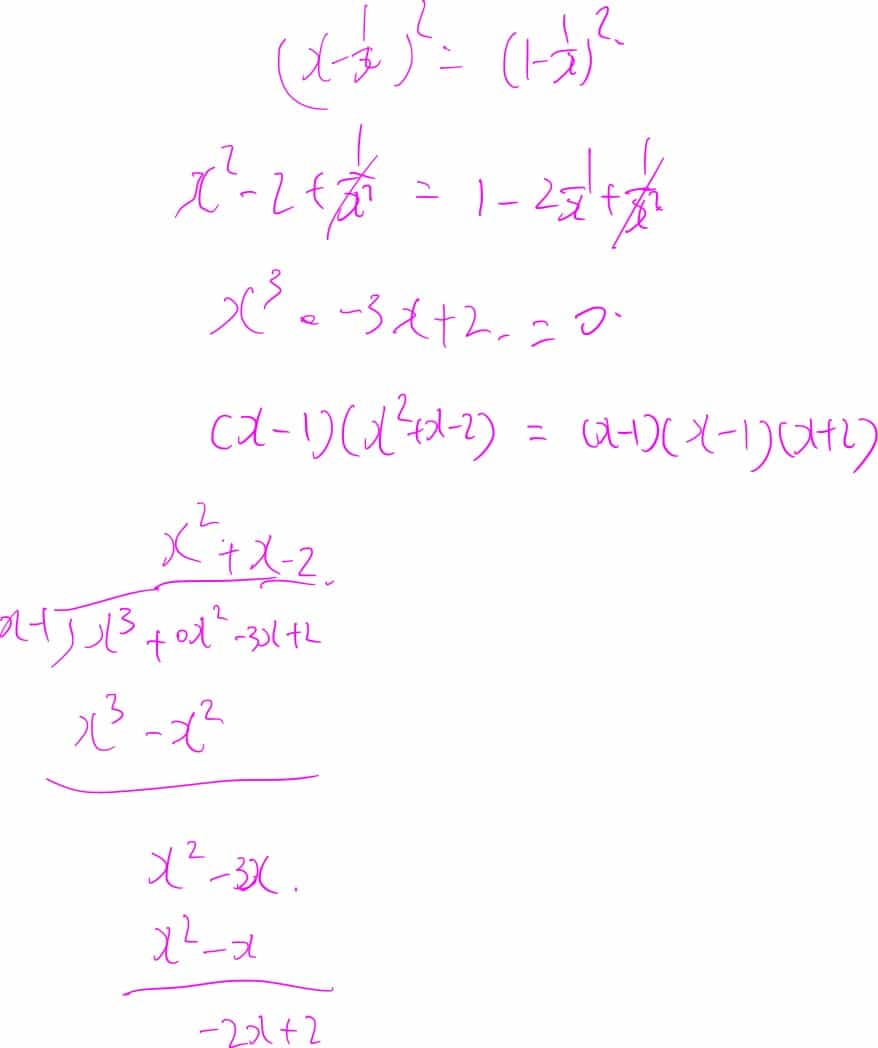 (x-1/x)² = (1-1/x)²
x² - 2 + 1/x² = 1 - 2 1/x + 1/x²
x³ -3x+2 = 0
(x-1)(x²+x-2) = (x-1)(x-1)(x+2)
x² + x - 2
x-1 ) x³ + 0x² - 3x + 2
x³ - x²
x² - 3x
x² - x
-2x+2